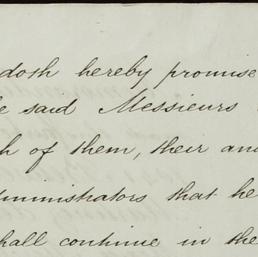 doth hereby promise
said Messieurs
of them, their and
that he
shall continue in the